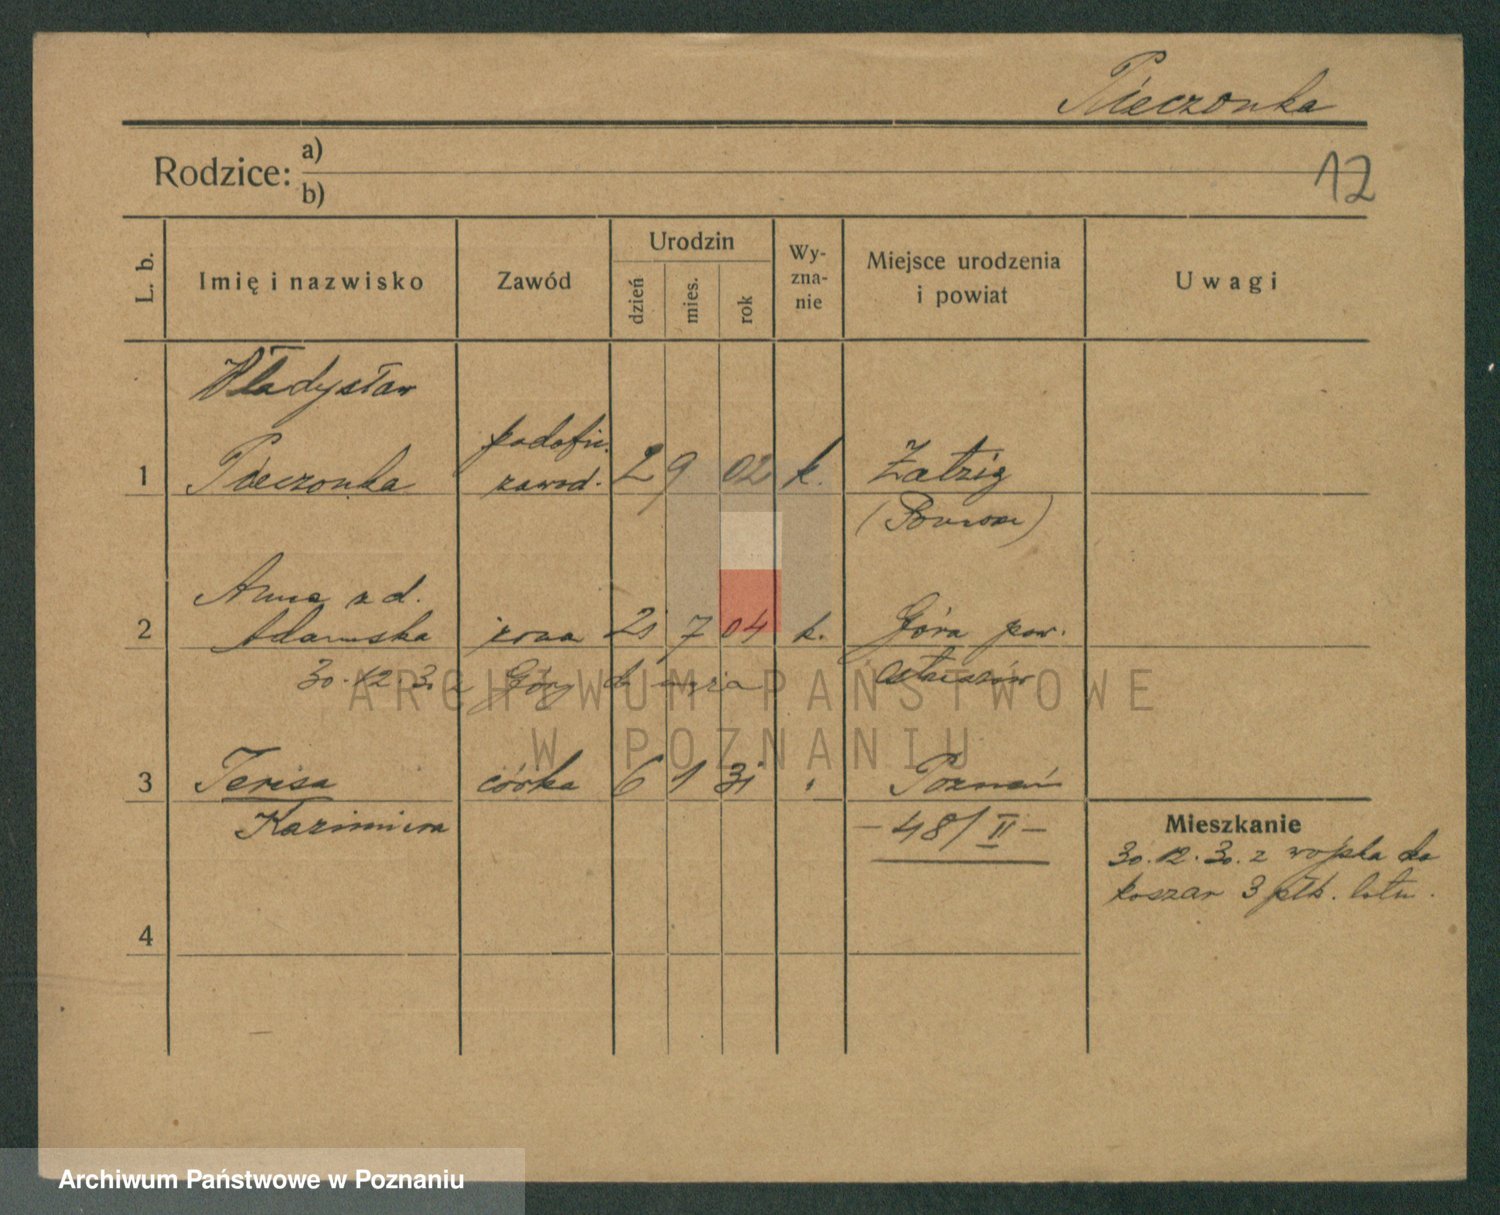 Pieczonka
Rodzice: a)
b)
12
L. b.
Imię i nazwisko
Zawód
Urodzin
dzień
mies.
rok
Wy-
zna-
nie
Miejsce urodzenia
i powiat
Uwagi
Władysław
1 Pieczonka podofic. zawod. 2 9 02 k. Zatzig
Anna z d.
2 Adamska żona 25 7 04 k. Góra pow.
30.12.30 z Góry do męża
3 Teresa córka 6 1 31 Poznań
Kazimiera
– 48/II –
Mieszkanie
30.12.30. z wojska do
koszar 3 płk. lotn.
4
ARCHIWUM PAŃSTWOWE
W POZNANIU
Archiwum Państwowe w Poznaniu